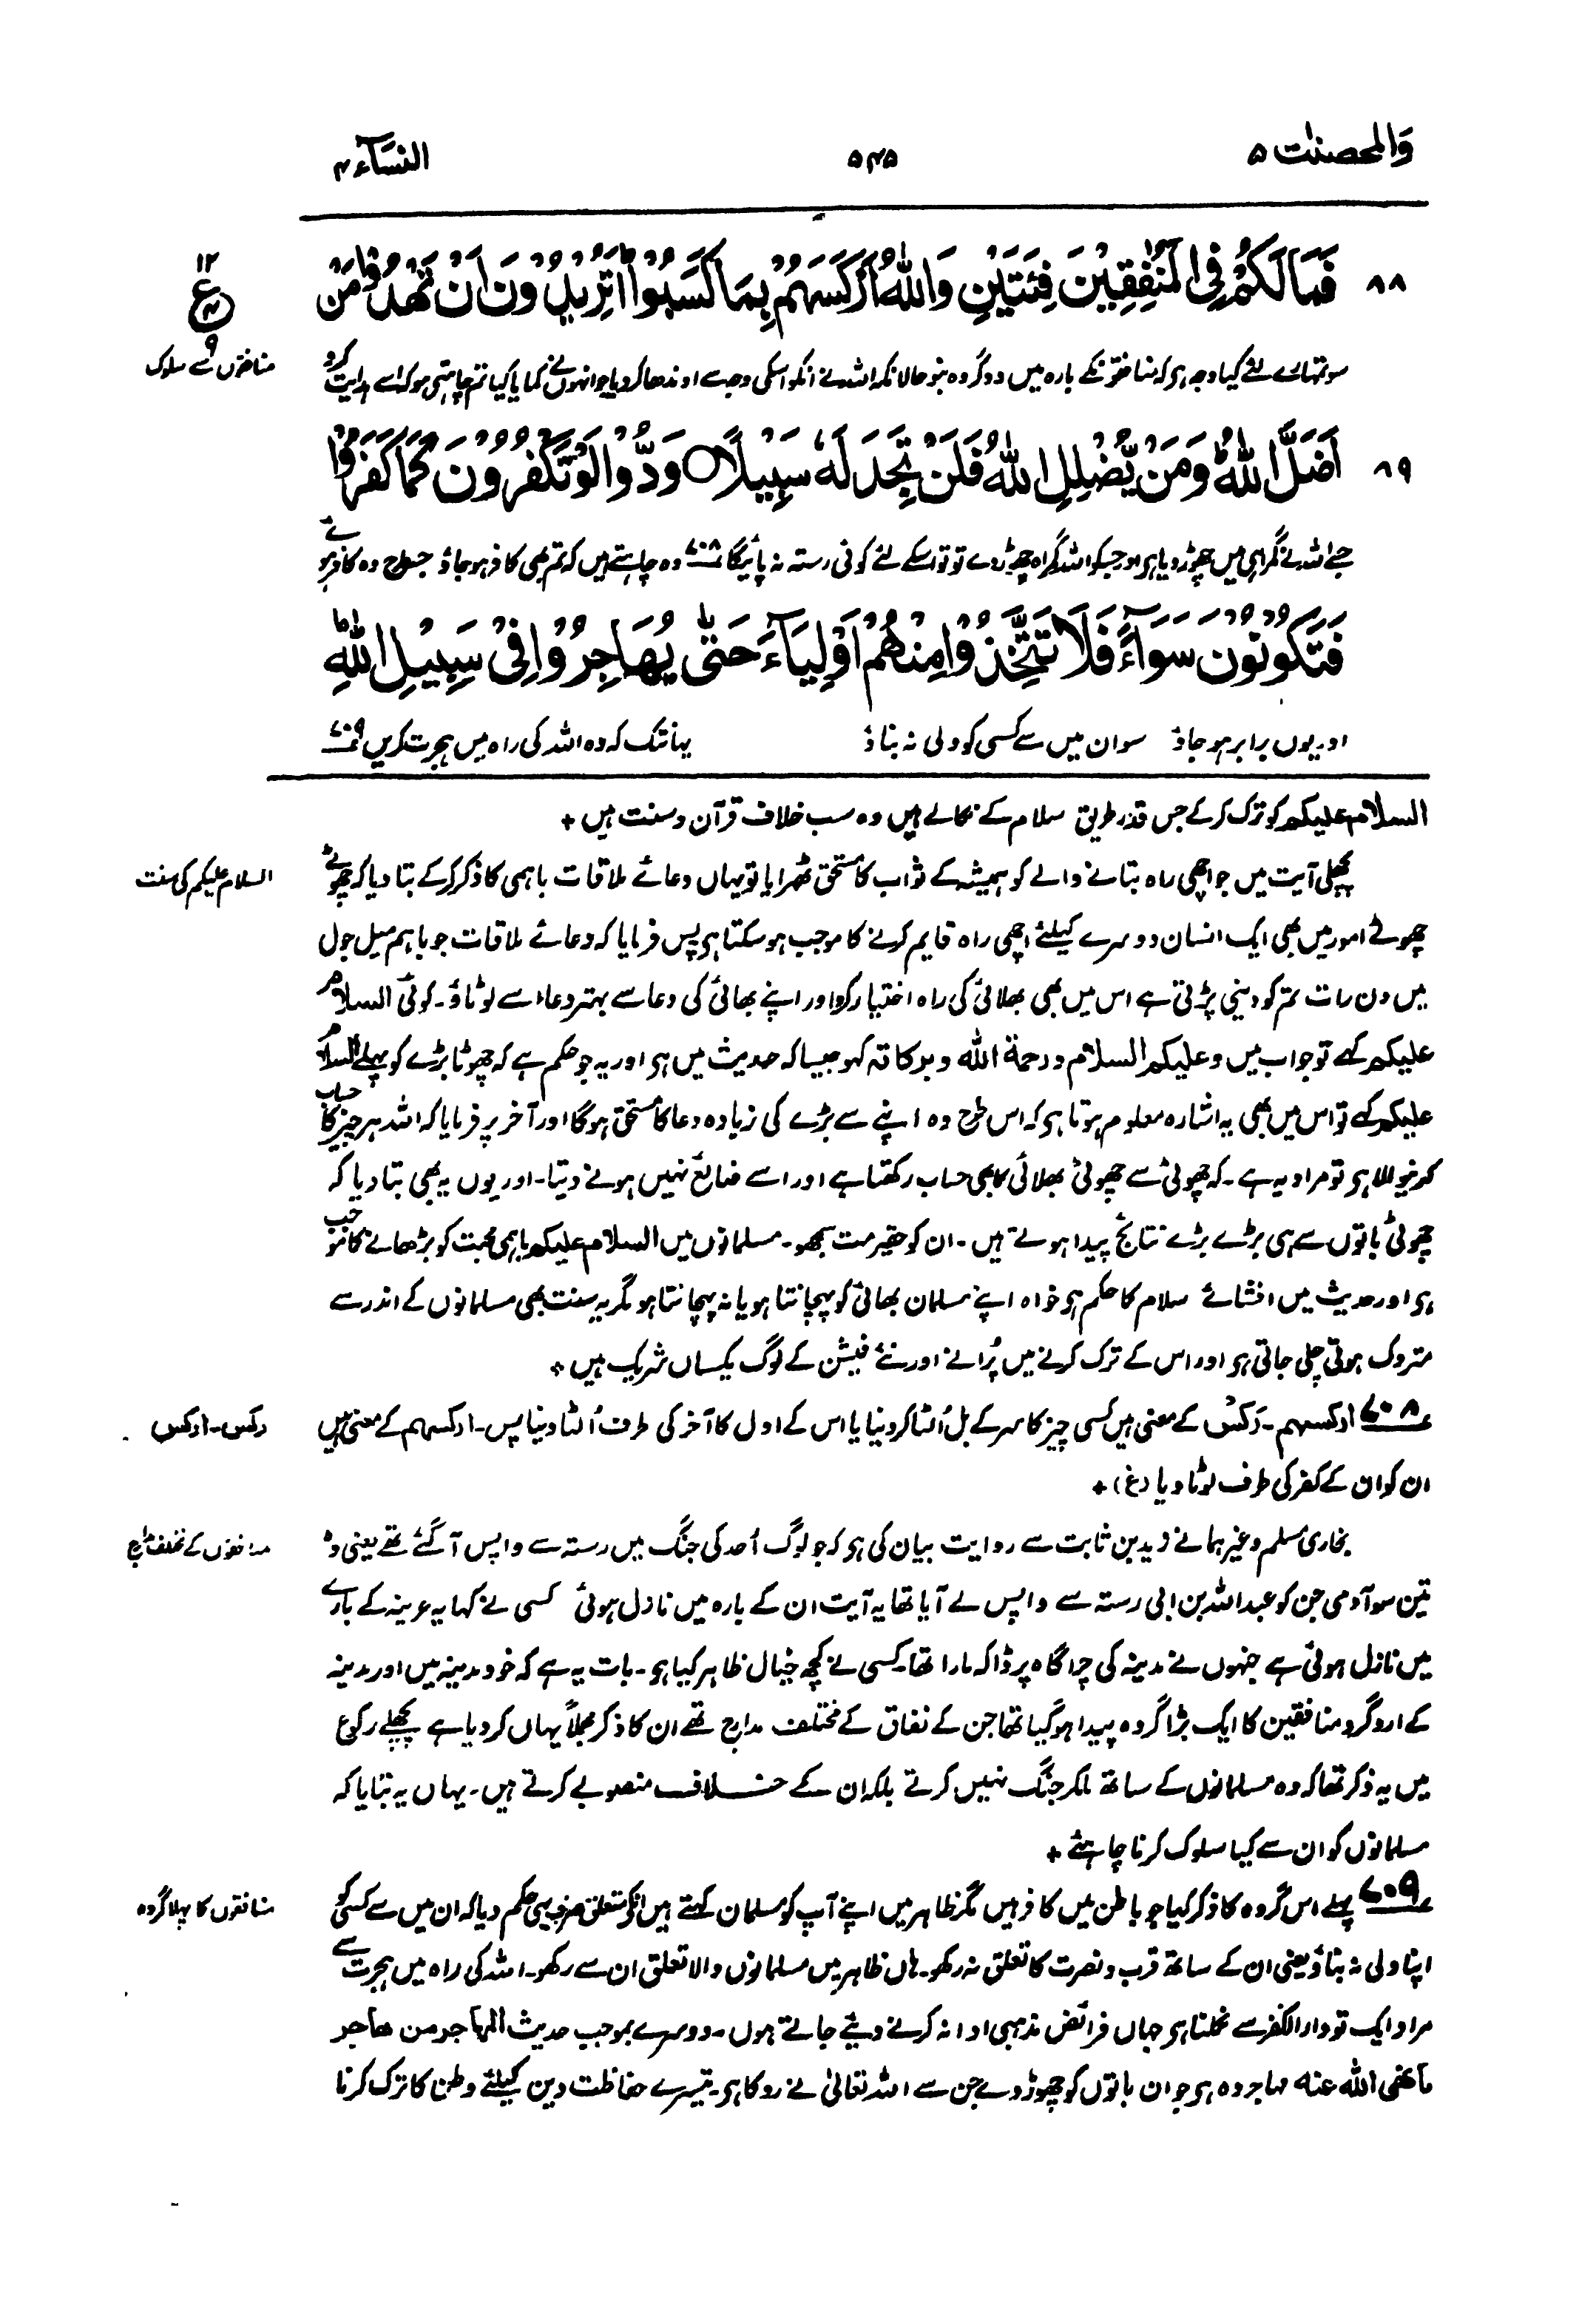 والمحصنٰت ۵
۵۴۵
النسآء ۴
۸۸ فَمَا لَكُمْ فِی الْمُنٰفِقِیْنَ فِئَتَیْنِ وَاللّٰهُ اَرْكَسَهُمْ بِمَا كَسَبُوْا اَتُرِیْدُوْنَ اَنْ تَهْدُوْا مَنْ
۱۲
ع
۹
منافقوں سے سلوک
سو تمہارے لئے کیا وجہ ہے کہ منافقونکے بارہ میں دو گروہ بنو حالانکہ اللہ نے انکو اسکی وجہ سے اوندھا کردیا جو انہوں نے کمایا کیا تم چاہتے ہو کہ اسے ہدایت کرو
۸۹ اَضَلَّ اللّٰهُ وَمَنْ یُّضْلِلِ اللّٰهُ فَلَنْ تَجِدَ لَهٗ سَبِیْلًا ○ وَدُّوْا لَوْ تَكْفُرُوْنَ كَمَا كَفَرُوْا
جسے اللہ نے گمراہی میں چھوڑ دیا ہے اور جسکو اللہ گمراہ چھوڑ دے تو تو اسکے لئے کوئی رستہ نہ پائیگا ۷۰۸ وہ چاہتے ہیں کہ تم بھی کافر ہو جاؤ جسطرح وہ کافر ہوئے
فَتَكُوْنُوْنَ سَوَآءً فَلَا تَتَّخِذُوْا مِنْهُمْ اَوْلِیَآءَ حَتّٰی یُهَاجِرُوْا فِیْ سَبِیْلِ اللّٰهِ
اور یوں برابر ہو جاؤ سو ان میں سے کسی کو ولی نہ بناؤ یہانتک کہ وہ اللہ کی راہ میں ہجرت کریں ۷۰۹
السلام علیکم کو ترک کر کے جس قدر طریق سلام کے نکالے ہیں وہ سب خلاف قرآن و سنت ہیں +
پچھلی آیت میں جو اچھی راہ بتانے والے کو ہمیشہ کے ثواب کا مستحق ٹھرایا تو یہاں دعائے ملاقات باہمی کا ذکر کرکے بتا دیا کہ چھوٹے
السلام علیکم کی سنت
چھوٹے امور میں بھی ایک انسان دوسرے کیلئے اچھی راہ قایم کرنے کا موجب ہو سکتا ہے پس فرمایا کہ دعائے ملاقات جو باہم میل جول
میں دن رات تم کو دینی پڑتی ہے اس میں بھی بھلائی کی راہ اختیار کرو اور اپنے بھائی کی دعا سے بہتر دعا اسے لوٹاؤ۔ کوئی السلام
علیکم کہے تو جواب میں وعلیکم السلام ورحمۃ اللہ وبرکاتہ کہو جیسا کہ حدیث میں ہے اور یہ جو حکم ہے کہ چھوٹا بڑے کو پہلے السلام
علیکم کہے تو اس میں بھی یہ اشارہ معلوم ہوتا ہے کہ اس طرح وہ اپنے سے بڑے کی زیادہ دعا کا مستحق ہوگا اور آخر پر فرمایا کہ اللہ ہر چیز کا حساب
کرنیوالا ہے تو مراد یہ ہے۔ کہ چھوٹی سے چھوٹی بھلائی کا بھی حساب رکھتا ہے اور اسے ضایع نہیں ہونے دیتا۔ اور یوں یہ بھی بتا دیا کہ
چھوٹی باتوں سے ہی بڑے بڑے نتائج پیدا ہوتے ہیں۔ ان کو حقیر مت سمجھو۔ مسلمانوں میں السلام علیکم باہمی محبت کو بڑھانے کا موجب
ہے اور حدیث میں افشائے سلام کا حکم ہے خواہ اپنے مسلمان بھائی کو پہچانتا ہو یا نہ پہچانتا ہو مگر یہ سنت بھی مسلمانوں کے اندر سے
متروک ہوتی چلی جاتی ہے اور اس کے ترک کرنے میں پُرانے اور نئے فیشن کے لوگ یکساں شریک ہیں +
۷۰۸ ارکسهم۔ رَکْس کے معنی ہیں کسی چیز کا سر کے بل اُلٹا کر دینا یا اس کے اول کا آخر کی طرف اُلٹا دینا پس۔ ارکسهم کے معنی ہیں
رکس۔ ارکس
ان کو ان کے کفر کی طرف لوٹا دیا (غ) +
بخاری مسلم وغیرہما نے زید بن ثابت سے روایت بیان کی ہے کہ جو لوگ اُحد کی جنگ میں رستہ سے واپس آگئے تھے یعنی وہ
منافقوں کے مختلف مدارج
تین سو آدمی جن کو عبداللہ بن ابی رستہ سے واپس لے آیا تھا یہ آیت ان کے بارہ میں نازل ہوئی کسی نے کہا یہ عرینہ کے بارے
میں نازل ہوئی ہے جنہوں نے مدینہ کی چراگاہ پر ڈاکہ مارا تھا۔ کسی نے کچھ خیال ظاہر کیا ہے۔ بات یہ ہے کہ خود مدینہ میں اور مدینہ
کے اردگرد منافقین کا ایک بڑا گروہ پیدا ہوگیا تھا جن کے نفاق کے مختلف مدارج تھے ان کا ذکر مجملاً یہاں کردیا ہے پچھلے رکوع
میں یہ ذکر تھا کہ وہ مسلمانوں کے ساتھ ملکر جنگ نہیں کرتے بلکہ ان کے خلاف منصوبے کرتے ہیں۔ یہاں یہ بتایا کہ
مسلمانوں کو ان سے کیا سلوک کرنا چاہئے +
۷۰۹ پہلے اس گروہ کا ذکر کیا جو باطن میں کافر ہیں مگر ظاہر میں اپنے آپ کو مسلمان کہتے ہیں انکے متعلق صرف یہی حکم دیا کہ ان میں سے کسی کو
منافقوں کا پہلا گروہ
اپنا ولی نہ بناؤ یعنی ان کے ساتھ قرب و نصرت کا تعلق نہ رکھو۔ ہاں ظاہر میں مسلمانوں والا تعلق ان سے رکھو۔ اللہ کی راہ میں ہجرت سے
مراد ایک تو دار الکفر سے نکلنا ہے جہاں فرائض مذہبی ادا نہ کرنے دیئے جاتے ہوں۔ دوسرے بموجب حدیث المهاجر من هاجر
ما نهى الله عنه مہاجر وہ ہے جو ان باتوں کو چھوڑ دے جن سے اللہ تعالیٰ نے روکا ہے۔ تیسرے حفاظت دین کیلئے وطن کا ترک کرنا